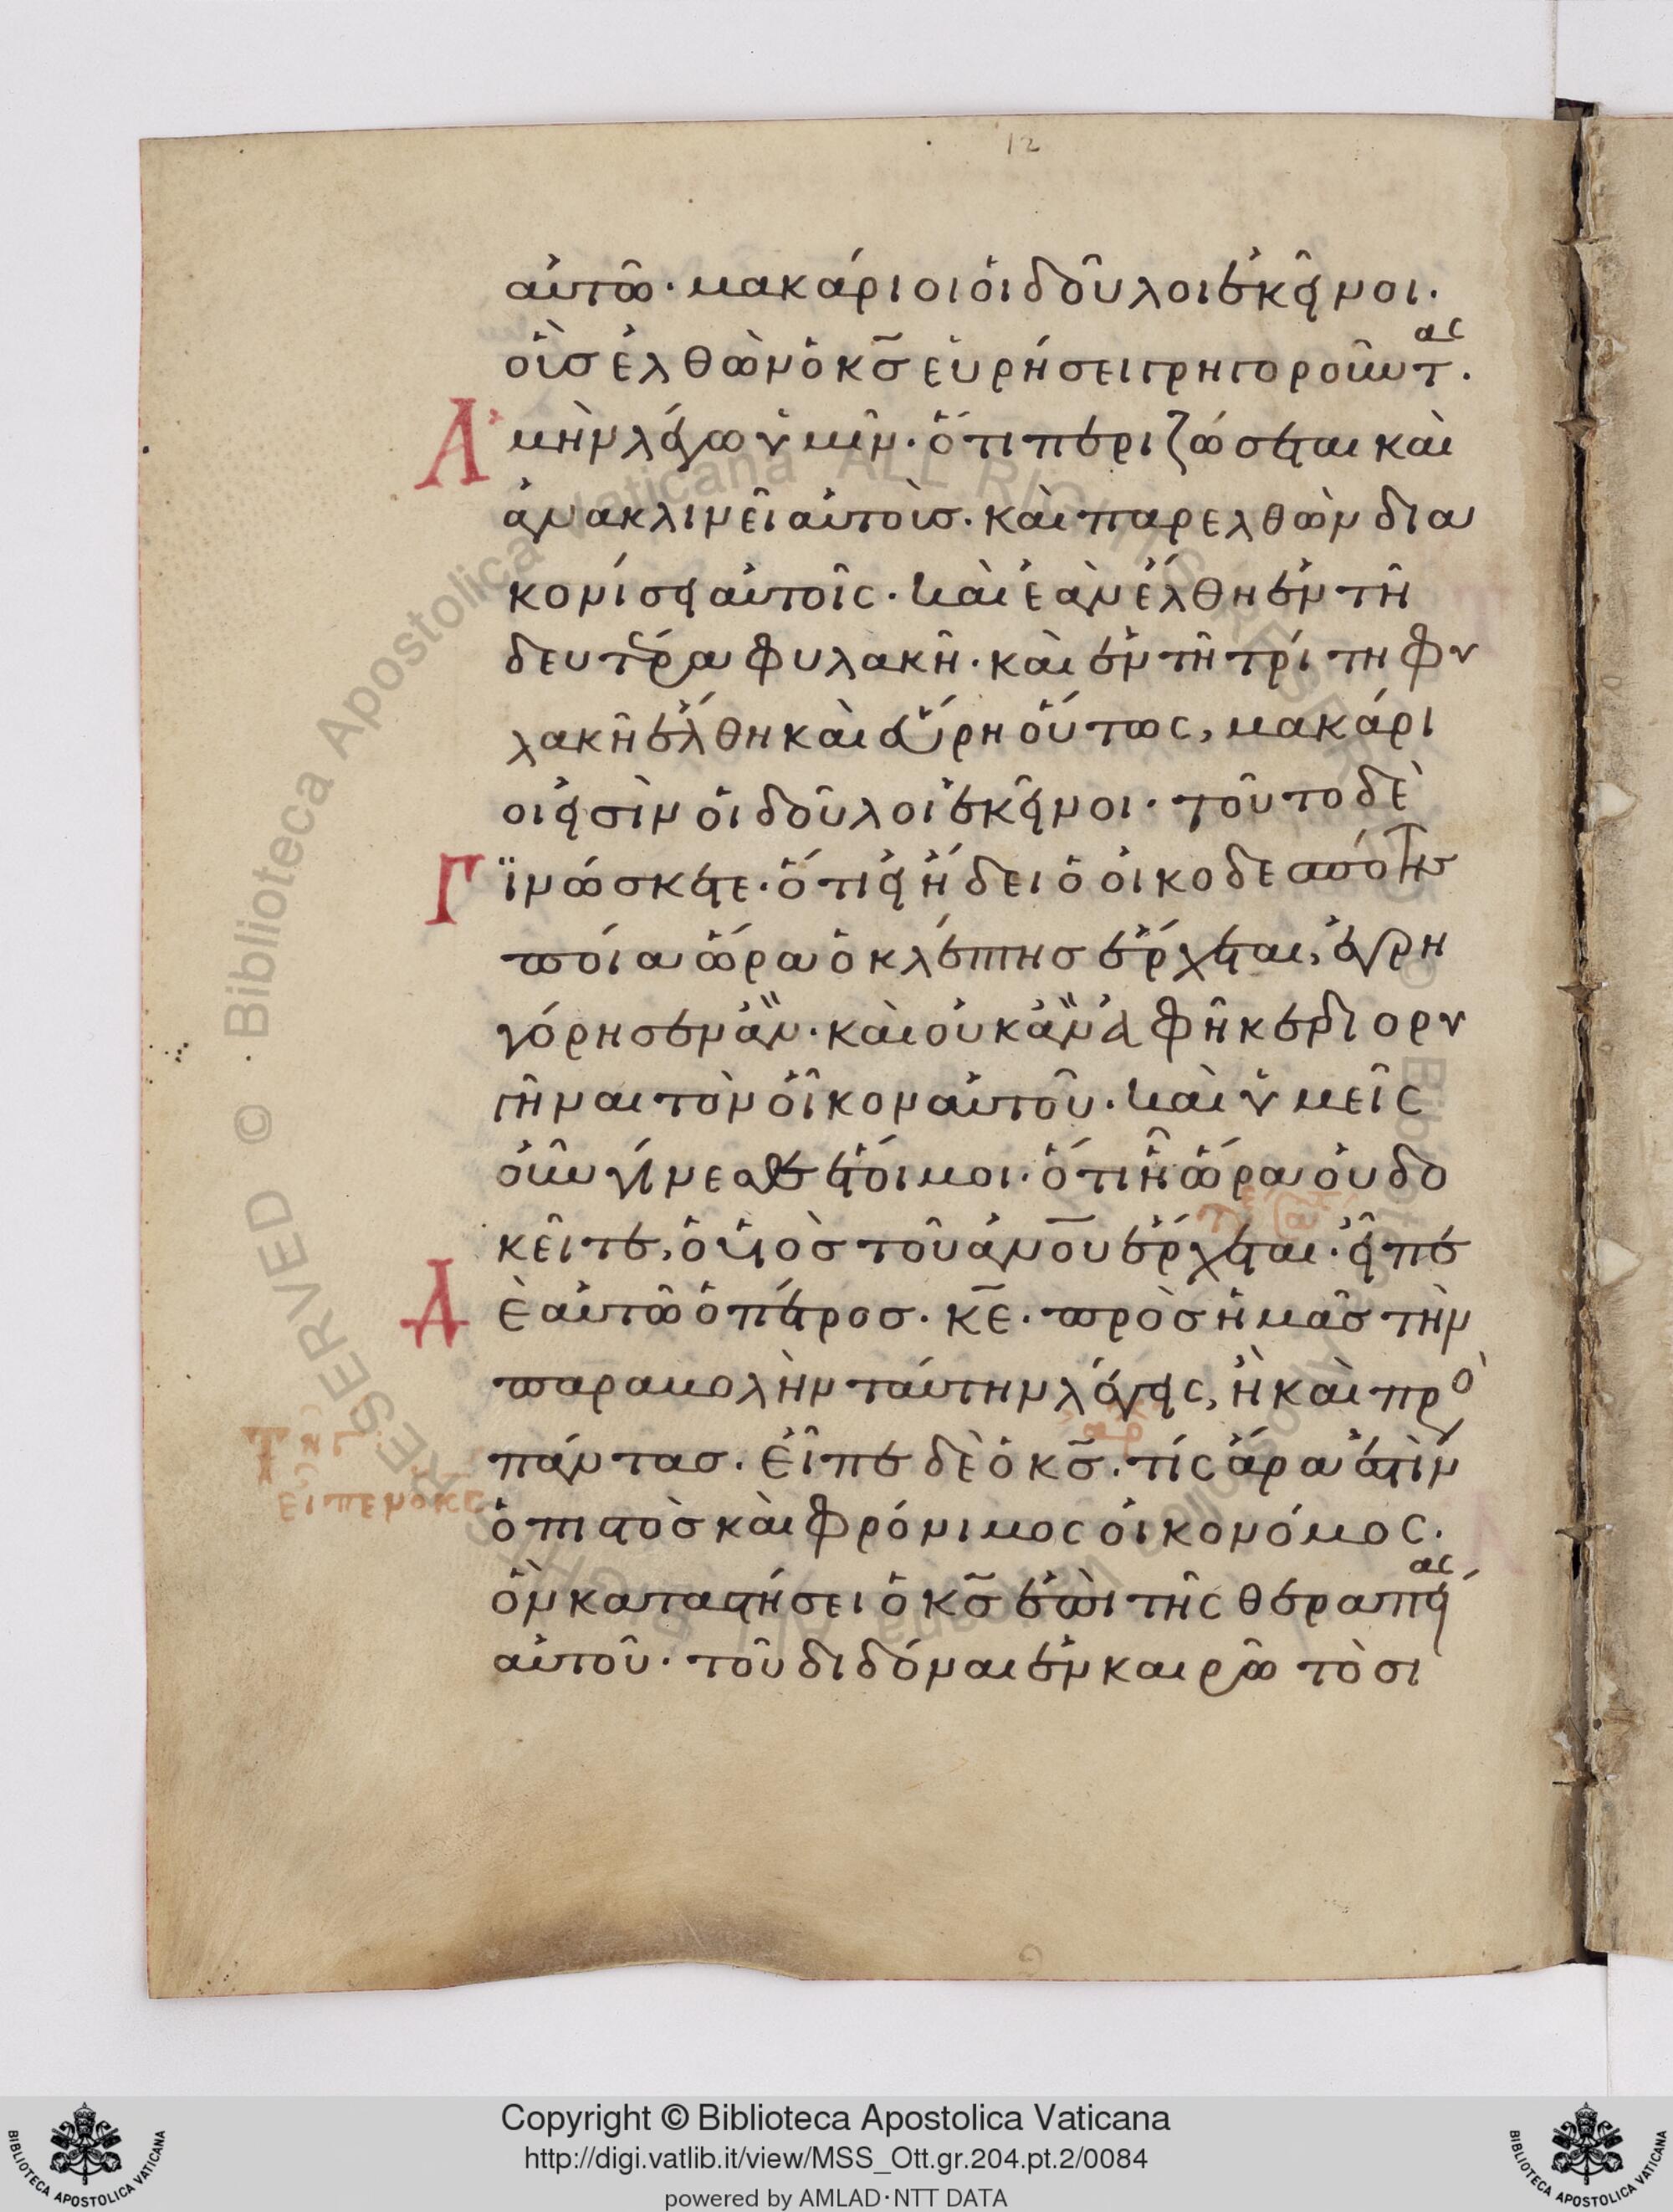 12
αὐτῶ· μακάριοι οἱ δοῦλοι ἐκεῖνοι.
οὓσ ἐλθὼν ὁ κ̅σ̅ εὑρήσει γρηγοροῦντας.
Ἀμὴν λέγω ὑμῖν· ὅτι περιζώσεται καὶ
ἀνακλινεῖ αὐτοὺσ. καὶ παρελθὼν δια
κονίσει αὐτοῖς. καὶ ἐὰν ἔλθη ἐν τῆ
δευτέρα φυλακῆ. καὶ ἐν τῆ τρίτη φυ
λακῆ ἔλθη καὶ εὕρη οὕτως, μακάρι
οι εἰσὶν οἱ δοῦλοι ἐκεῖνοι. τοῦτο δὲ
Γϊνώσκετε. ὅτι εἰ ἤδει ὁ οἰκοδεσπότης
ποία ὥρα ὁ κλέπτησ ἔρχεται, ἐγρη
γόρησεν ἂν. καὶ οὐκ ἂν ἀφῆκεν διορυ
γῆναι τὸν οἶκον αὐτοῦ. καὶ ὑμεῖς
οὖν γίνεσθε ἕτοιμοι. ὅτι ἧ ὥρα οὐ δο
κεῖτε, ὁ υἱὸσ τοῦ ἀν̅ο̅υ̅ ἔρχεται. εἶπε
Δὲ αὐτῶ ὁ πέτροσ. κ̅ε̅. πρὸσ ἡμᾶσ τὴν
παραβολὴν ταύτην λέγεις, ἢ καὶ πρὸ
πάντασ. εἶπε δὲ ὁ κ̅σ̅. τίς ἄρα ἐστὶν
ὁ πιστὸσ καὶ φρόνιμος οἰκονόμος.
ὃν καταστήσει ὁ κ̅σ̅ ἐπὶ τῆς θεραπείας
αὐτοῦ. τοῦ διδόναι ἐν καιρῶ τὸ σι
ειπενοκς
Copyright © Biblioteca Apostolica Vaticana
http://digi.vatlib.it/view/MSS_Ott.gr.204.pt.2/0084
powered by AMLAD·NTT DATA